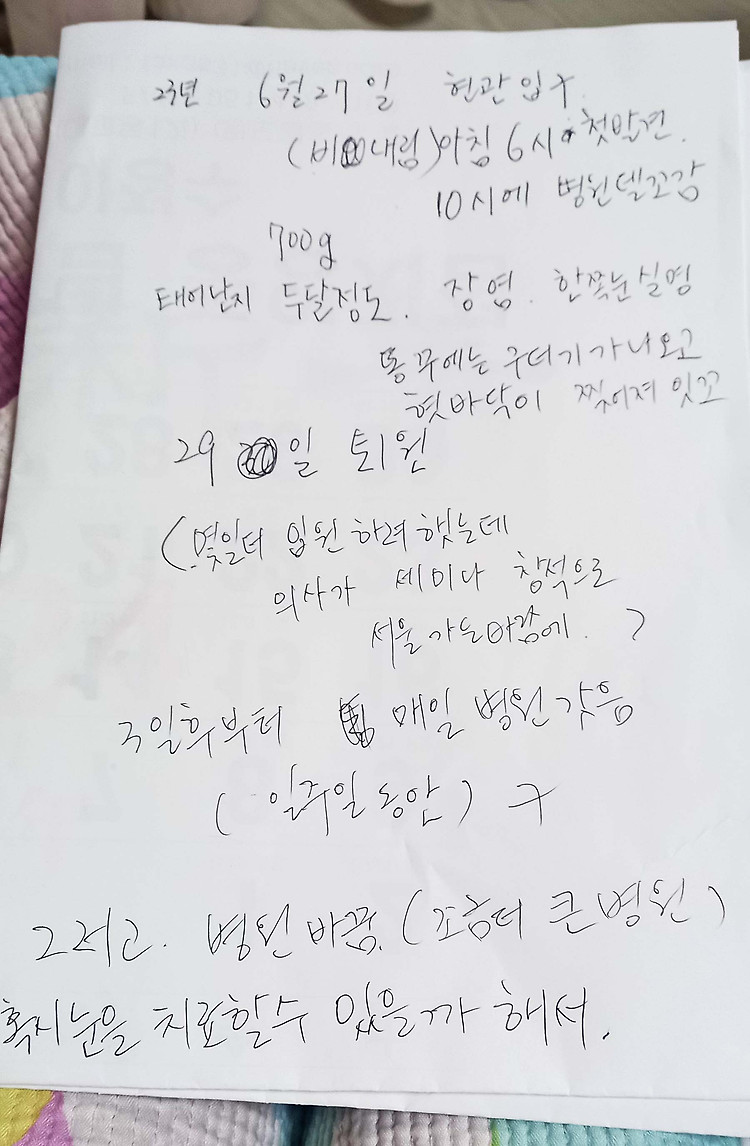 23년 6월 27일 현관입구.
(비 내림) 아침 6시 첫발견.
10시에 병원델꼬감
700g
태어난지 두달정도. 장염. 한쪽눈실명
똥꾸에는 구더기가 나오고
혓바닥이 찢어져 잇꼬
29 일 퇴원
(몇일더 입원 하려 했는데
의사가 세미나 참석으로
서울 가는바람에. )
3일후부터 매일 병원 갓음
(일주일 동안)
그러고. 병원 바꿈. (조금더 큰 병원)
혹시 눈을 치료할수 있을까 해서.